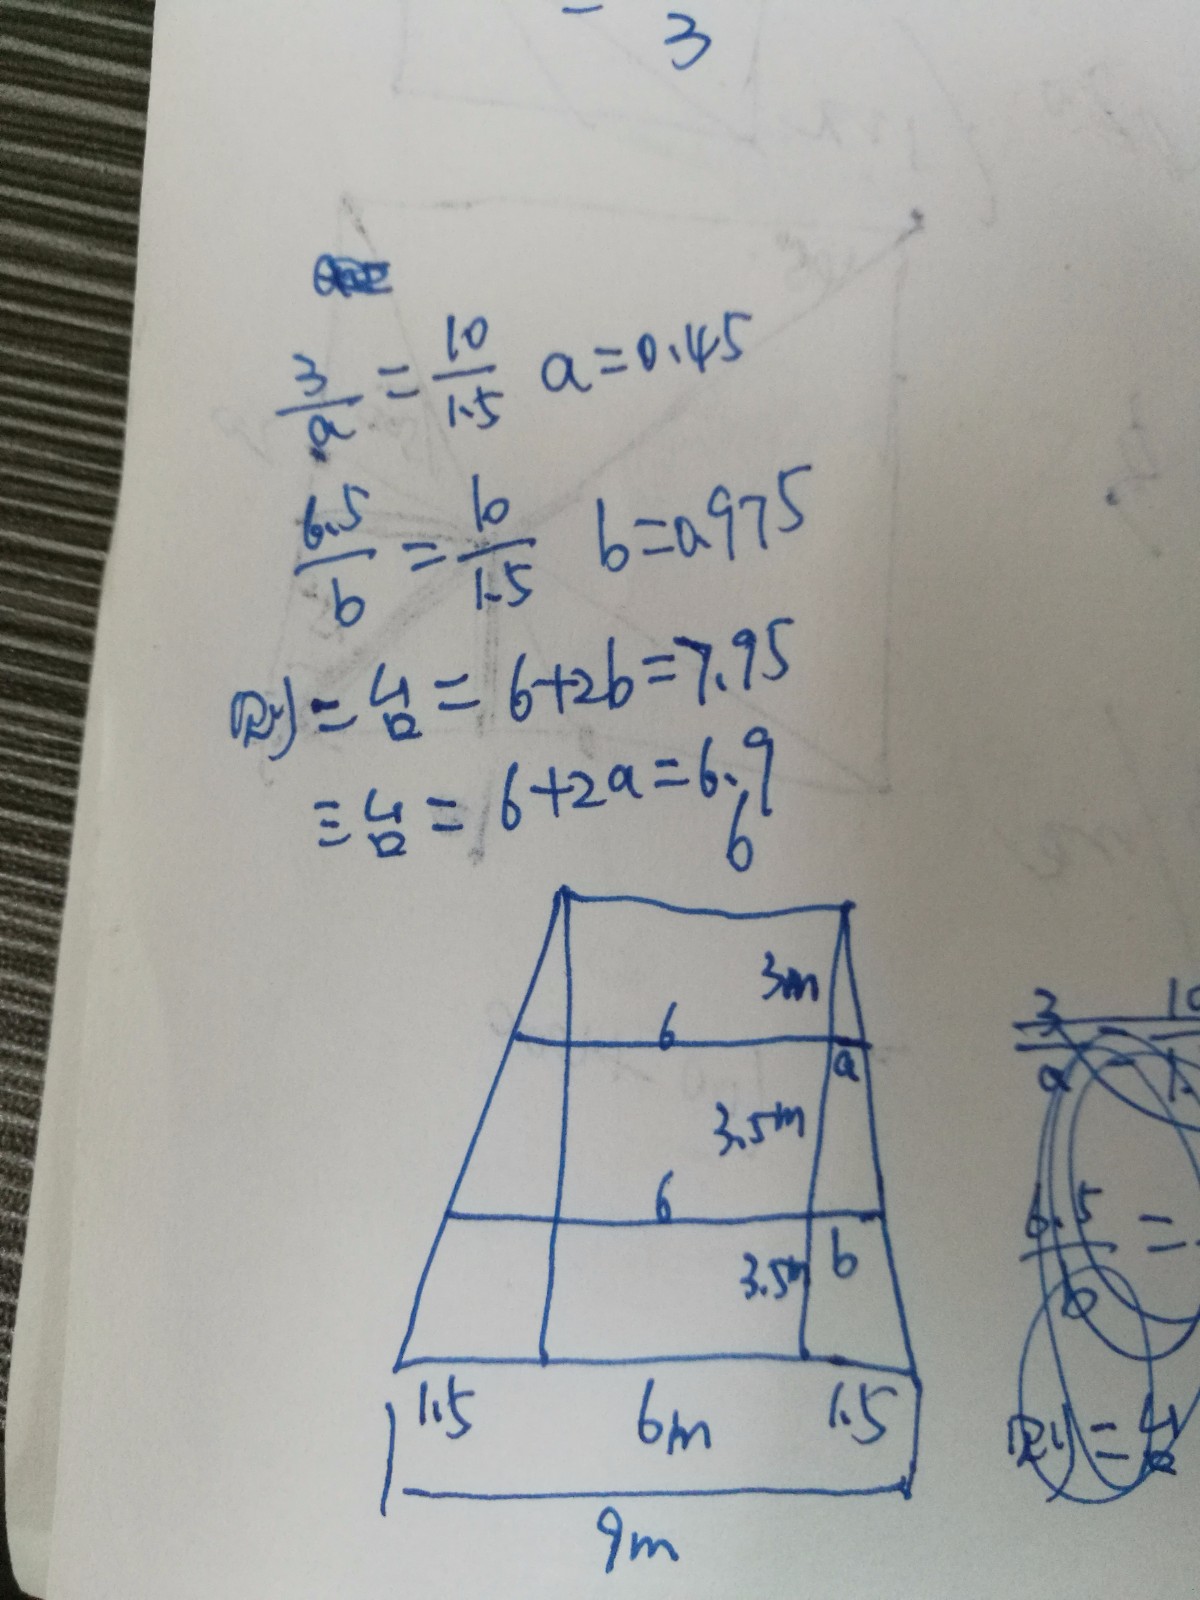 3
3/a = 10/1.5 a=0.45
6.5/b = 10/1.5 b=0.975
则二号=6+2b=7.95
三号=6+2a=6.9
6
3m
6
a
3.5m
6
3.5m b
1.5 6m 1.5
9m
3/a
6.5/b =
则二号